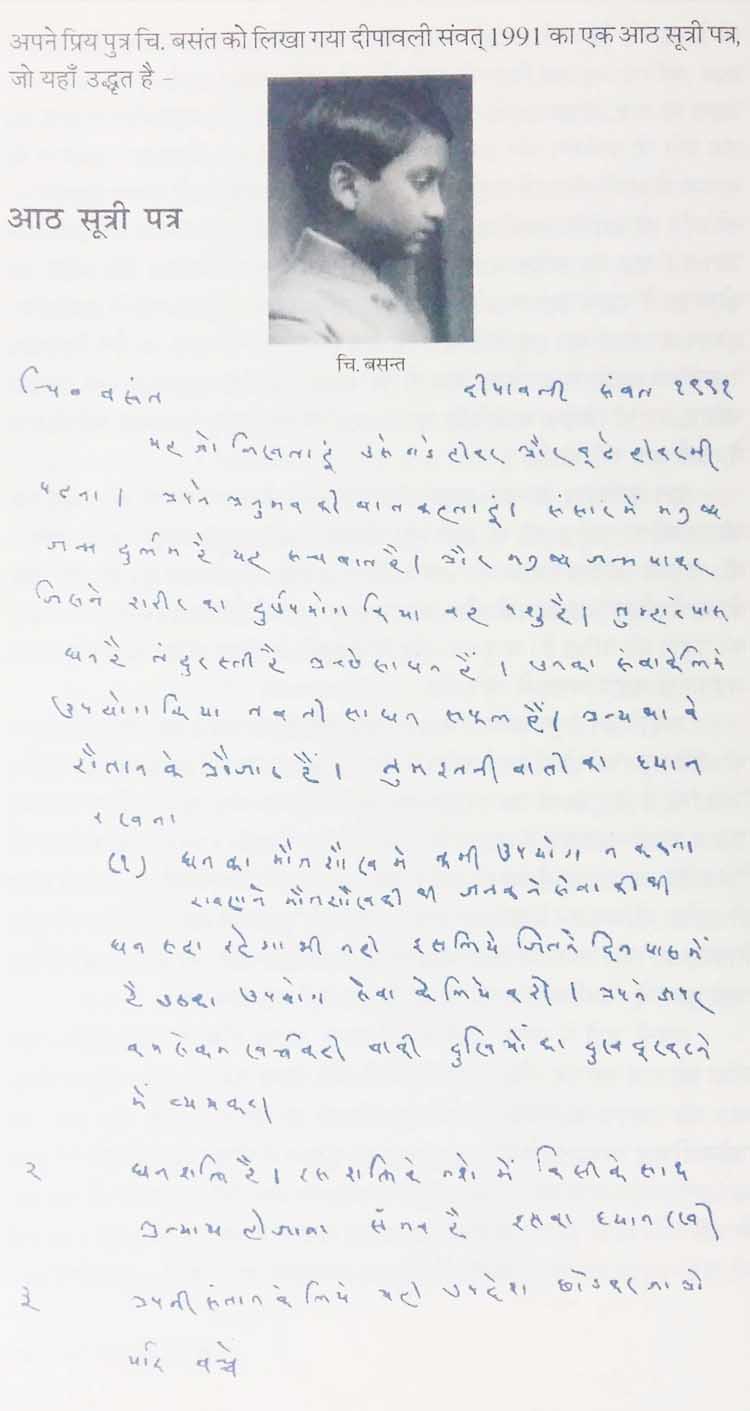 अपने प्रिय पुत्र चि. बसंत को लिखा गया दीपावली संवत् 1991 का एक आठ सूत्री पत्र,
जो यहाँ उद्धृत है –
आठ सूत्री पत्र
चि. बसन्त
चि० बसंत दीपावली संवत १९९१
यह जो लिखता हूं उसे बडे होकर और बूढे होकर भी
पढना। अपने अनुभव की बात कहता हूं। संसार में मनुष्य
जन्म दुर्लभ है यह सच बात है। और मनुष्य जन्म पाकर
जिसने शरीर का दुर्उपयोग किया वह पशु है। तुम्हारे पास
धन है तंदुरस्ती है अच्छे साधन हैं। उनका सेवा के लिये
उपयोग किया तब तो साधन सफल हैं। अन्यथा वे
शैतान के औजार हैं। तुम इतनी बातों का ध्यान
रखना
(१) धन का मौज शौख में कभी उपयोग न करना
रावण ने मौज शौख की थी जनक ने सेवा की थी
धन सदा रहेगा भी नहीं इसलिये जितने दिन पास में
है उसका उपयोग सेवा के लिये करो। अपने ऊपर
कम से कम खर्च करो बाकी दुखियों का दुख दूर करने
में व्यय करो।
२ धन शक्ति है। इस शक्ति के नशे में किसी के साथ
अन्याय हो जाना संभव है इसका ध्यान रखो
३ अपनी संतान के लिये यही उपदेश छोडकर जाओ
यदि बच्चे